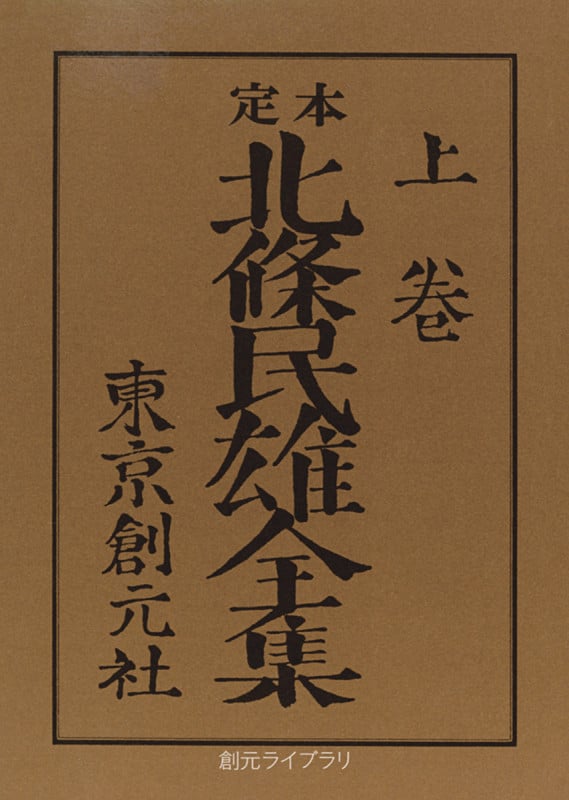 上巻
定本
北條民雄全集
東京創元社
創元ライブラリ